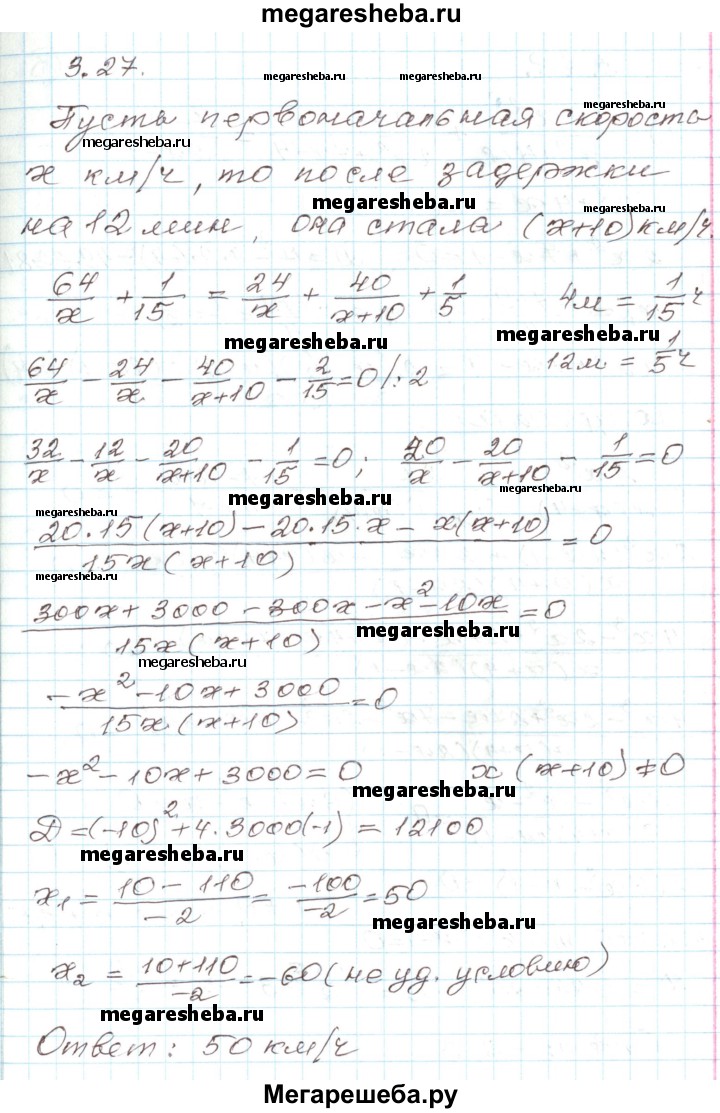 megaresheba.ru
3.27.
megaresheba.ru
megaresheba.ru
Пусть первоначальная скорость
megaresheba.ru
megaresheba.ru
x км/ч, то после задержки
megaresheba.ru
на 12 мин, она стала (x+10) км/ч.
64/x + 1/15 = 24/x + 40/(x+10) + 1/5    4м = 1/15 ч
megaresheba.ru
megaresheba.ru
64/x - 24/x - 40/(x+10) - 2/15 = 0 /:2    12м = 1/5 ч
32/x - 12/x - 20/(x+10) - 1/15 = 0; 20/x - 20/(x+10) - 1/15 = 0
megaresheba.ru
megaresheba.ru
(20·15(x+10) - 20·15·x - x(x+10))/(15x(x+10)) = 0
megaresheba.ru
(300x + 3000 - 300x - x² - 10x)/(15x(x+10)) = 0
megaresheba.ru
megaresheba.ru
(-x² - 10x + 3000)/(15x(x+10)) = 0
-x² - 10x + 3000 = 0    x(x+10) ≠ 0
megaresheba.ru
Д = (-10)² + 4·3000(-1) = 12100
megaresheba.ru
x₁ = (10 - 110)/-2 = -100/-2 = 50
megaresheba.ru
x₂ = (10 + 110)/-2 = -60 (не уд. условию)
megaresheba.ru
Ответ: 50 км/ч
Мегарешеба.ру